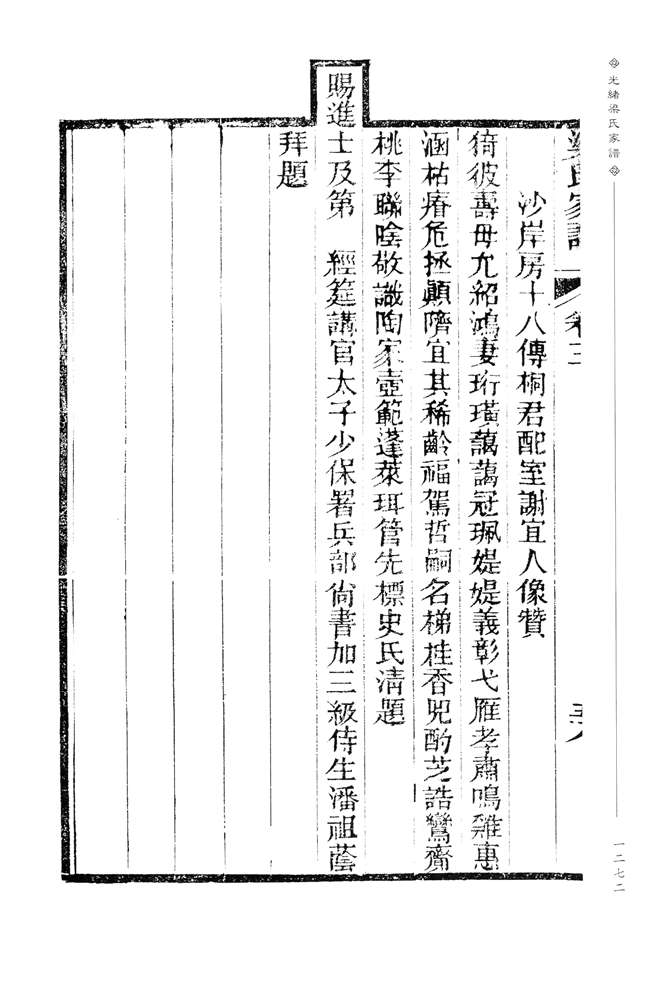 光緒梁氏家譜
一二七二
梁氏家譜 卷三
沙岸房十八傳桐君配室謝宜人像贊
猗彼壽母允紹鴻妻珩璜藹藹冠珮媞媞義彰弋雁孝肅鳴雞惠
涵枯瘠危拯顚隮宜其稀齡福駕哲嗣名梯桂香兕酌芝誥鸞齎
桃李聯陰敬識陶家壺範蓬萊珥管先標史氏淸題
賜進士及第 經筵講官太子少保署兵部尙書加三級侍生潘祖蔭
拜題